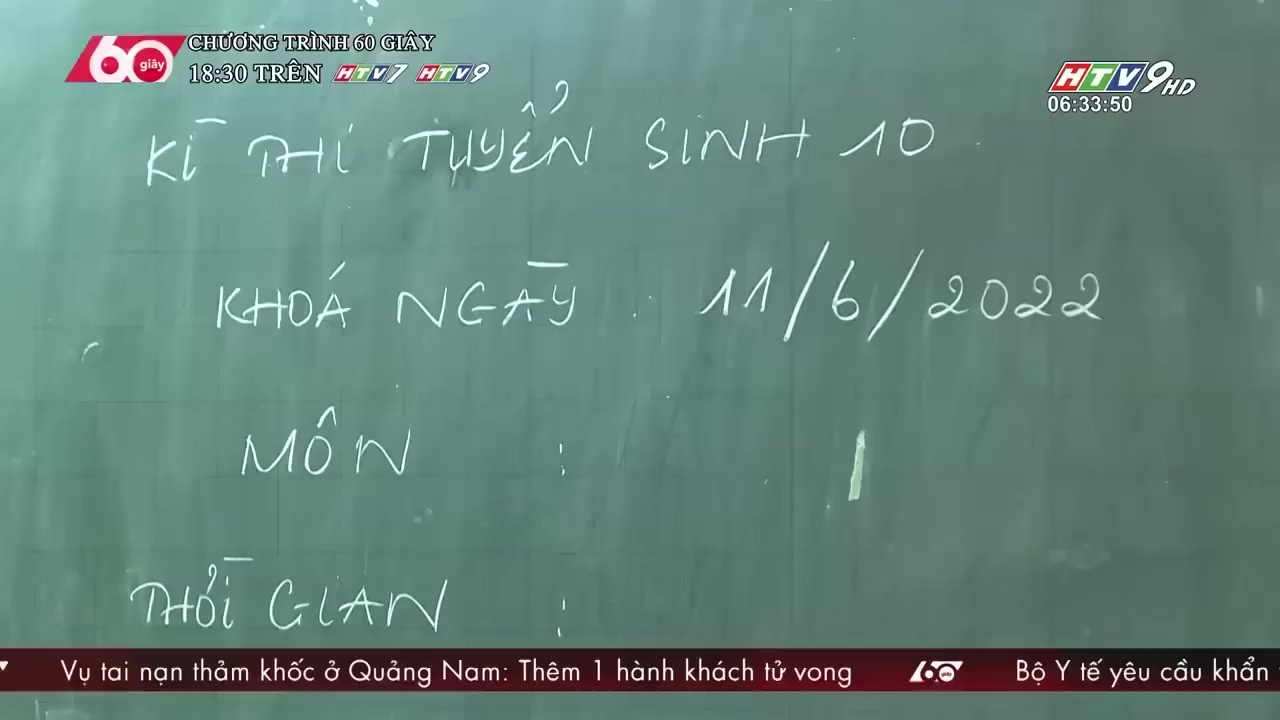 60 giây
CHƯƠNG TRÌNH 60 GIÂY
18:30 TRÊN HTV7 HTV9
HTV9 HD
06:33:50
KÌ THI TUYỂN SINH 10
KHOÁ NGÀY : 11/6/2022
MÔN :
THỜI GIAN :
Vụ tai nạn thảm khốc ở Quảng Nam: Thêm 1 hành khách tử vong 60 giây Bộ Y tế yêu cầu khẩn